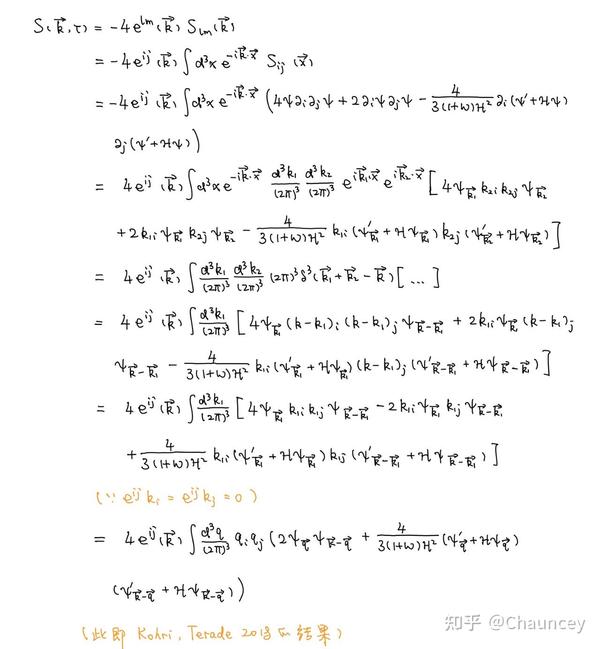 S(k⃗,τ) = -4e^{lm}(k⃗) S_{lm}(k⃗)
= -4e^{ij}(k⃗) ∫d³x e^{-ik⃗·x⃗} S_{ij}(x⃗)
= -4e^{ij}(k⃗) ∫d³x e^{-ik⃗·x⃗} (4ψ∂_i∂_jψ + 2∂_iψ∂_jψ - \frac{4}{3(1+w)ℋ²} ∂_i(ψ'+ℋψ)
∂_j(ψ'+ℋψ))
= 4e^{ij}(k⃗) ∫d³x e^{-ik⃗·x⃗} \frac{d³k_1}{(2π)³} \frac{d³k_2}{(2π)³} e^{ik⃗_1·x⃗} e^{ik⃗_2·x⃗} [4ψ_{k⃗_1} k_{2i} k_{2j} ψ_{k⃗_2}
+ 2k_{1i} ψ_{k⃗_1} k_{2j} ψ_{k⃗_2} - \frac{4}{3(1+w)ℋ²} k_{1i} (ψ'_{k⃗_1}+ℋψ_{k⃗_1}) k_{2j} (ψ'_{k⃗_2}+ℋψ_{k⃗_2})]
= 4e^{ij}(k⃗) ∫\frac{d³k_1}{(2π)³} \frac{d³k_2}{(2π)³} (2π)³ δ³(k⃗_1+k⃗_2-k⃗) [...]
= 4e^{ij}(k⃗) ∫\frac{d³k_1}{(2π)³} [4ψ_{k⃗_1} (k-k_1)_i (k-k_1)_j ψ_{k⃗-k⃗_1} + 2k_{1i} ψ_{k⃗_1} (k-k_1)_j
ψ_{k⃗-k⃗_1} - \frac{4}{3(1+w)ℋ²} k_{1i} (ψ'_{k⃗_1}+ℋψ_{k⃗_1}) (k-k_1)_j (ψ'_{k⃗-k⃗_1}+ℋψ_{k⃗-k⃗_1})]
= 4e^{ij}(k⃗) ∫\frac{d³k_1}{(2π)³} [4ψ_{k⃗_1} k_{1i} k_{1j} ψ_{k⃗-k⃗_1} - 2k_{1i} ψ_{k⃗_1} k_{1j} ψ_{k⃗-k⃗_1}
+ \frac{4}{3(1+w)ℋ²} k_{1i} (ψ'_{k⃗_1}+ℋψ_{k⃗_1}) k_{1j} (ψ'_{k⃗-k⃗_1}+ℋψ_{k⃗-k⃗_1})]
(∵ e^{ij}k_i = e^{ij}k_j = 0)
= 4e^{ij}(k⃗) ∫\frac{d³q}{(2π)³} q_i q_j (2ψ_{q⃗} ψ_{k⃗-q⃗} + \frac{4}{3(1+w)ℋ²} (ψ'_{q⃗}+ℋψ_{q⃗})
(ψ'_{k⃗-q⃗}+ℋψ_{k⃗-q⃗}))
(此即 Kohri, Terade 2018的结果)
知乎 @Chauncey